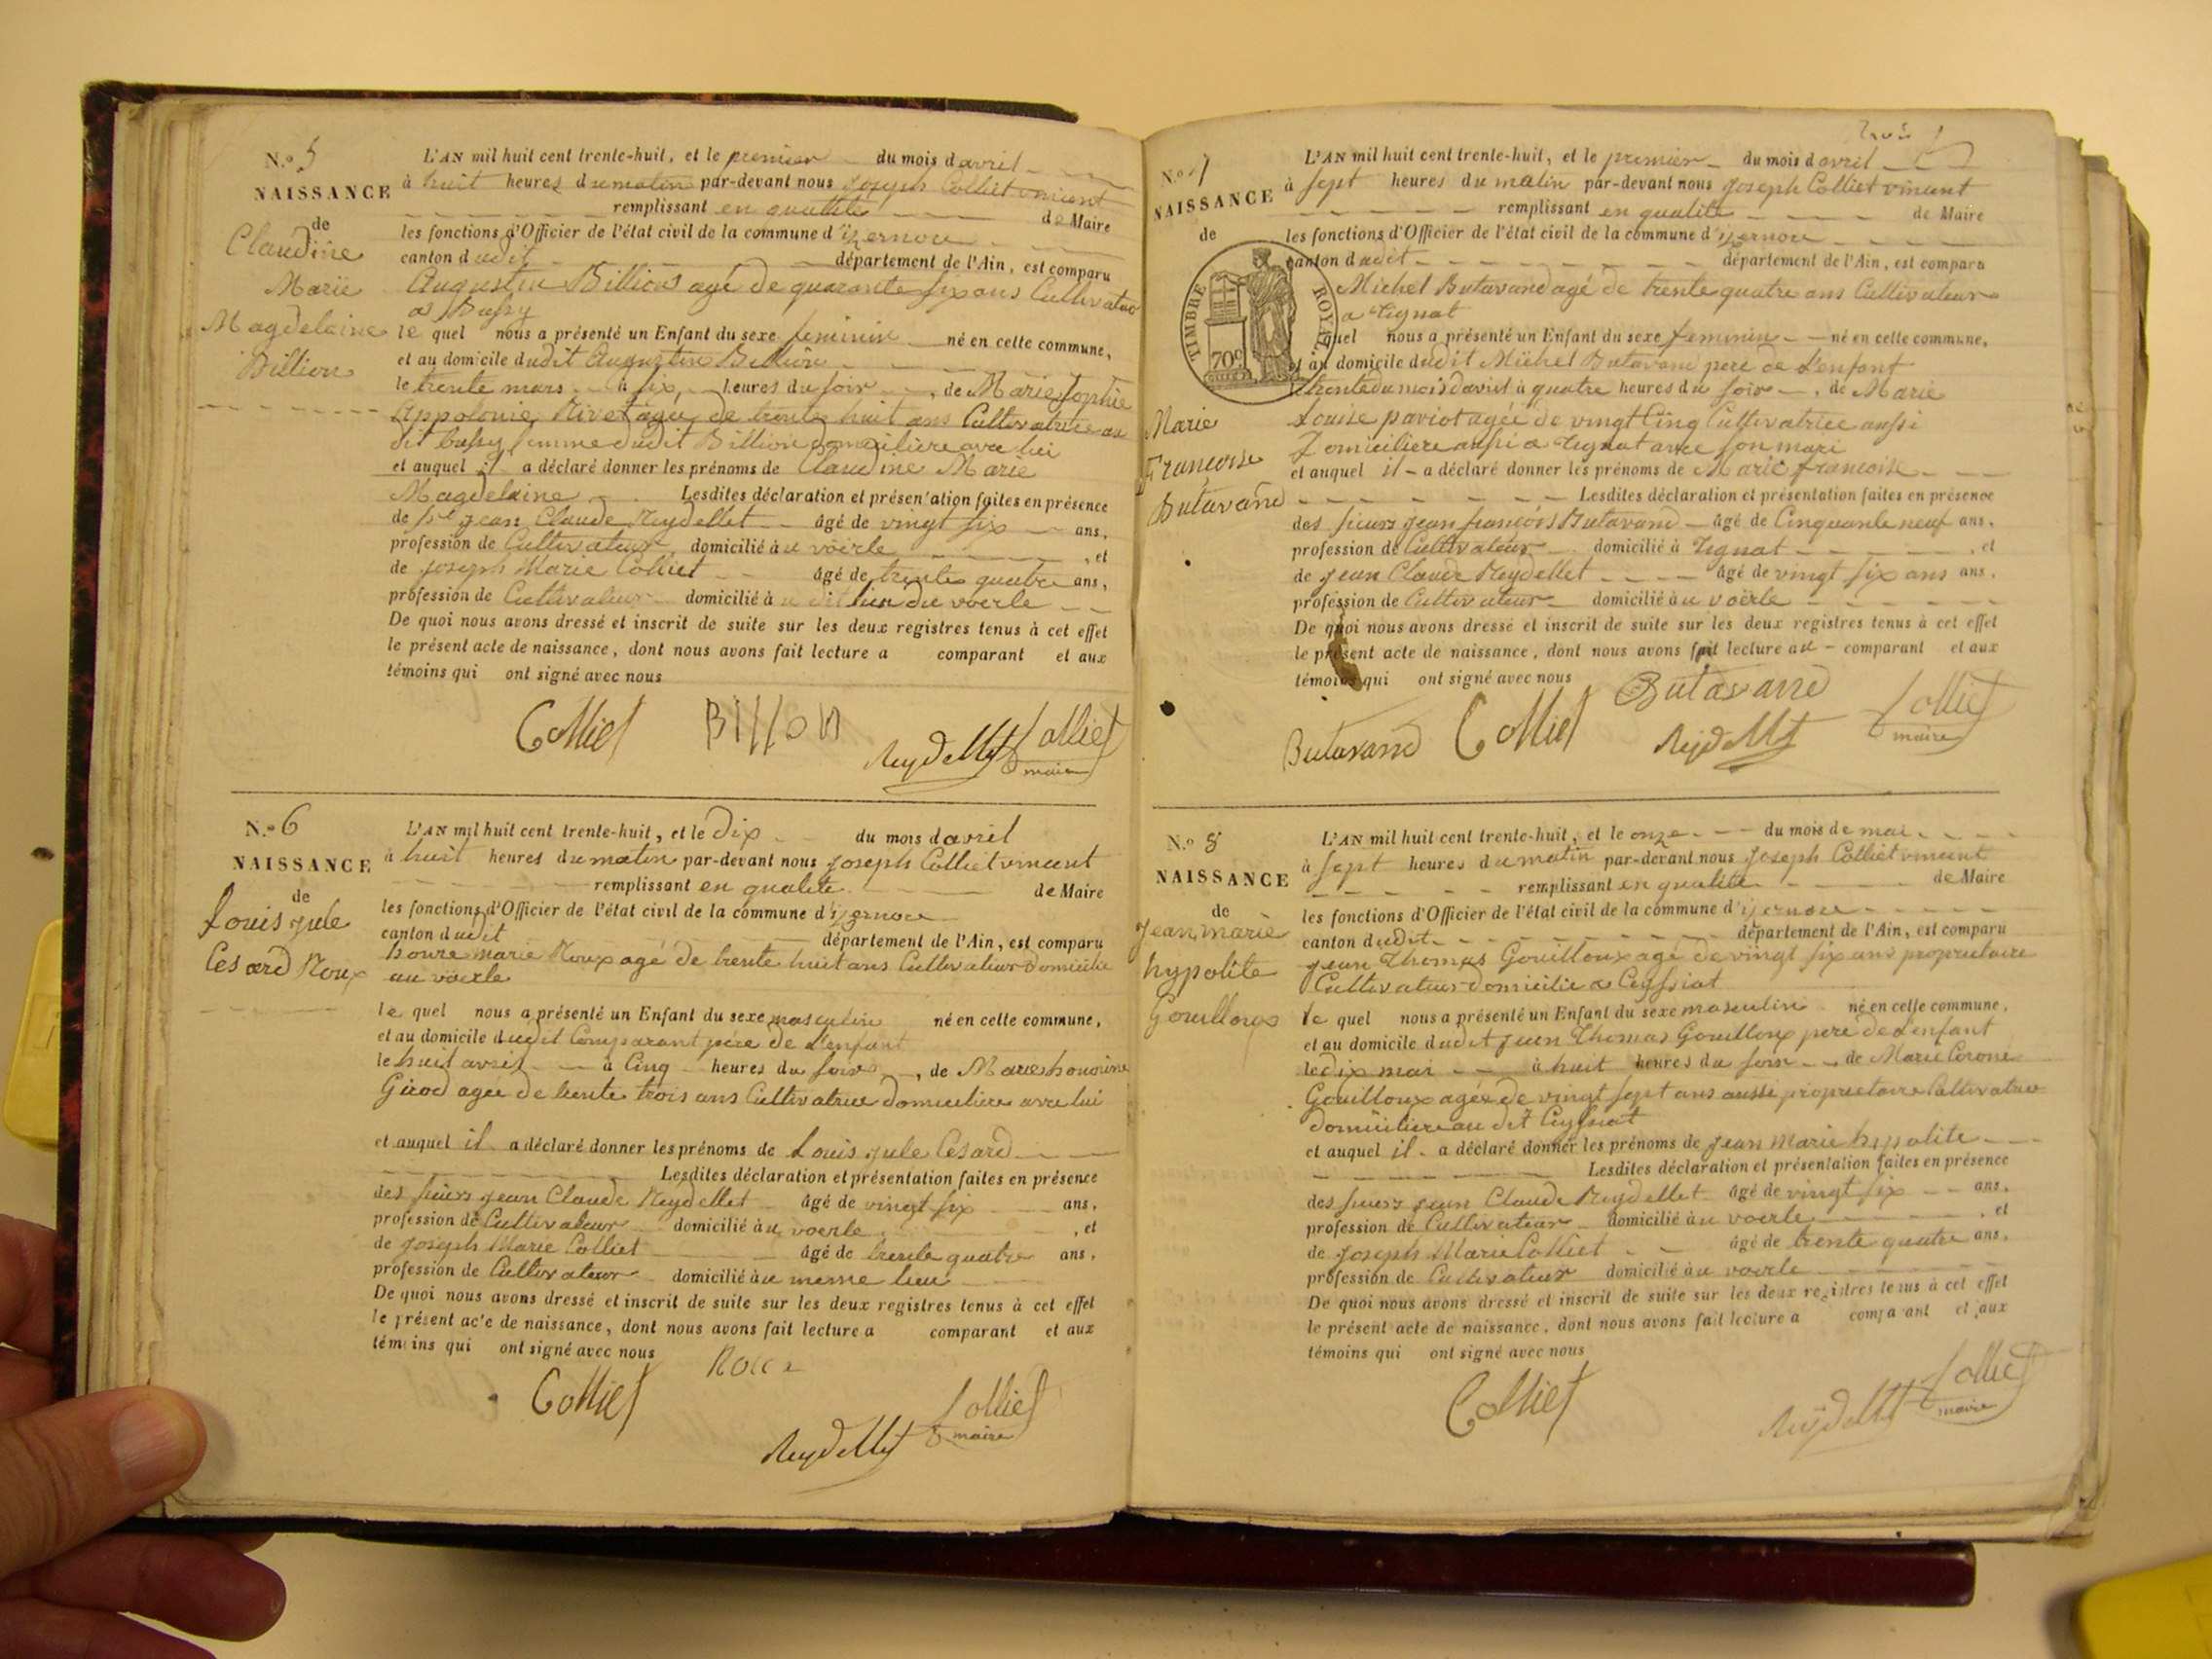 N.o 5
NAISSANCE
de
Claudine
Marie
Magdelaine
Billion
L'AN mil huit cent trente-huit, et le premier du mois d'avril
à huit heures du matin par-devant nous Joseph Colliet vincent
remplissant en qualité de Maire
les fonctions d'Officier de l'état civil de la commune d'izernore
canton dudit département de l'Ain, est comparu
Augustin Billion agé de quarante six ans Cultivateur
a Bussy
le quel nous a présenté un Enfant du sexe feminin né en cette commune,
et au domicile dudit Augustin Billion
le trente mars à six heures du soir, de Marie Sophie
Appolonie Rivet agée de trente huit ans Cultivatrice au
dit bussy femme dudit Billion domiciliere avec lui
et auquel il a déclaré donner les prénoms de Claudine Marie
Magdelaine Lesdites déclaration et présentation faites en présence
de Sr Jean Claude Reydellet âgé de vingt six ans,
profession de Cultivateur domicilié à u voerle, et
de Joseph Marie Colliet âgé de trente quatre ans,
profession de Cultivateur domicilié à u dit lieu du voerle
De quoi nous avons dressé et inscrit de suite sur les deux registres tenus à cet effet
le présent acte de naissance, dont nous avons fait lecture a comparant et aux
témoins qui ont signé avec nous
Colliet Billon Reydellet Colliet
maire
N.o 6
NAISSANCE
de
Louis jule
Cesard Roux
L'AN mil huit cent trente-huit, et le dix du mois d'avril
à huit heures du matin par-devant nous Joseph Colliet vincent
remplissant en qualité de Maire
les fonctions d'Officier de l'état civil de la commune d'izernore
canton dudit département de l'Ain, est comparu
marie Roux agé de trente huit ans Cultivateur domicilié
au voerle
le quel nous a présenté un Enfant du sexe masculin né en cette commune,
et au domicile dudit Comparant père de l'enfant
le huit avril à Cinq heures du soir, de Marie honorine
Girod agée de trente trois ans Cultivatrice domiciliere avec lui
et auquel il a déclaré donner les prénoms de Louis jule Cesard
Lesdites déclaration et présentation faites en présence
des sieurs Jean Claude Reydellet âgé de vingt six ans,
profession de Cultivateur domicilié à u voerle, et
de Joseph Marie Colliet âgé de trente quatre ans,
profession de Cultivateur domicilié à u meme lieu
De quoi nous avons dressé et inscrit de suite sur les deux registres tenus à cet effet
le présent acte de naissance, dont nous avons fait lecture a comparant et aux
témoins qui ont signé avec nous
Colliet Roux Reydellet Colliet
maire
N.o 7
NAISSANCE
de
TIMBRE ROYAL
70c
Marie
Françoise
Butavand
L'AN mil huit cent trente-huit, et le premier du mois d'avril
à sept heures du matin par-devant nous Joseph Colliet vincent
remplissant en qualité de Maire
les fonctions d'Officier de l'état civil de la commune d'izernore
canton dudit département de l'Ain, est comparu
Michel Butavand agé de trente quatre ans Cultivateur
a tignat
le quel nous a présenté un Enfant du sexe feminin né en cette commune,
et au domicile dudit Michel Butavand pere de l'enfant
trente du mois d'avril à quatre heures du soir, de Marie
Louise paviot agée de vingt Cinq Cultivatrice aussi
Domiciliere aussi a tignat avec son mari
et auquel il a déclaré donner les prénoms de Marie francoise
Lesdites déclaration et présentation faites en présence
des sieurs Jean françois Butavand âgé de Cinquante neuf ans,
profession de Cultivateur domicilié à Tignat, et
de Jean Claude Reydellet âgé de vingt six ans ans,
profession de Cultivateur domicilié à u voerle
De quoi nous avons dressé et inscrit de suite sur les deux registres tenus à cet effet
le présent acte de naissance, dont nous avons fait lecture au comparant et aux
témoins qui ont signé avec nous
Butavand Colliet Butavand Reydellet Colliet
maire
N.o 8
NAISSANCE
de
Jean marie
hypolite
Gouilloux
L'AN mil huit cent trente-huit, et le onze du mois de mai
à sept heures du matin par-devant nous Joseph Colliet vincent
remplissant en qualité de Maire
les fonctions d'Officier de l'état civil de la commune d'izernore
canton dudit département de l'Ain, est comparu
Jean Thomas Gouilloux agé de vingt six ans proprietaire
Cultivateur domicilié a Ceyssiat
le quel nous a présenté un Enfant du sexe masculin né en cette commune,
et au domicile dudit Jean Thomas Gouilloux pere de l'enfant
le dix mai à huit heures du soir, de Marie
Gouilloux agée de vingt sept ans aussi proprietaire Cultivatrice
domiciliere au dit Ceyssiat
et auquel il a déclaré donner les prénoms de Jean Marie hypolite
Lesdites déclaration et présentation faites en présence
des sieurs Jean Claude Reydellet âgé de vingt six ans,
profession de Cultivateur domicilié à u voerle, et
de Joseph Marie Colliet âgé de trente quatre ans,
profession de Cultivateur domicilié à u voerle
De quoi nous avons dressé et inscrit de suite sur les deux registres tenus à cet effet
le présent acte de naissance, dont nous avons fait lecture a comparant et aux
témoins qui ont signé avec nous
Colliet Reydellet Colliet
maire